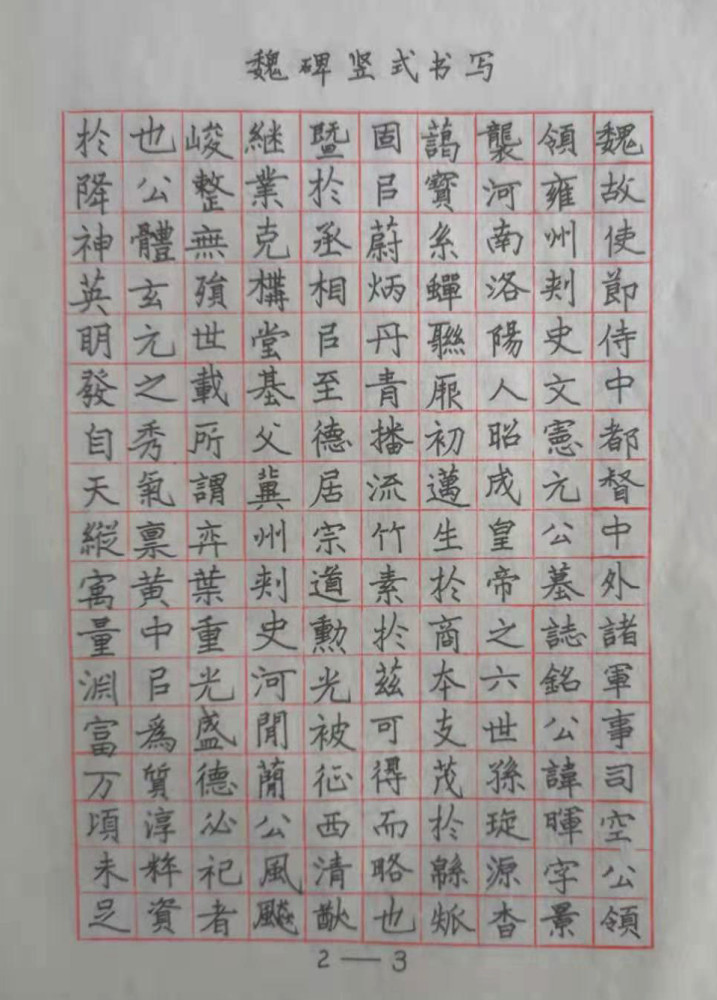 魏碑竖式书写
魏故使節侍中都督中外諸軍事司空公領
領雍州刾史文憲元公墓誌銘公諱暉字景
襲河南洛陽人昭成皇帝之六世孫琁源杳
藹寶系蟬聯初邁生於商夲支茂於緜瓞
固㠯蔚炳丹青播流竹素於茲可得而略也
暨於丞相㠯至德居宗道勳光被征西清猷
継業克構堂基父冀州刾史河間簡公風飈
峻整無殞世載所謂弈葉重光盛德必祀者
也公體玄元之秀氣稟黄中㠯為質淳粹資
於降神英明發自天縱寓量淵富万頃未足
2—3